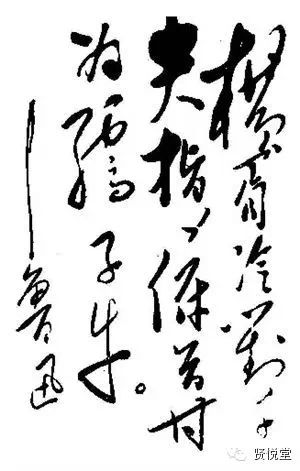 横眉冷对千
夫指，俯首甘
为孺子牛。
——鲁迅
贤悦堂